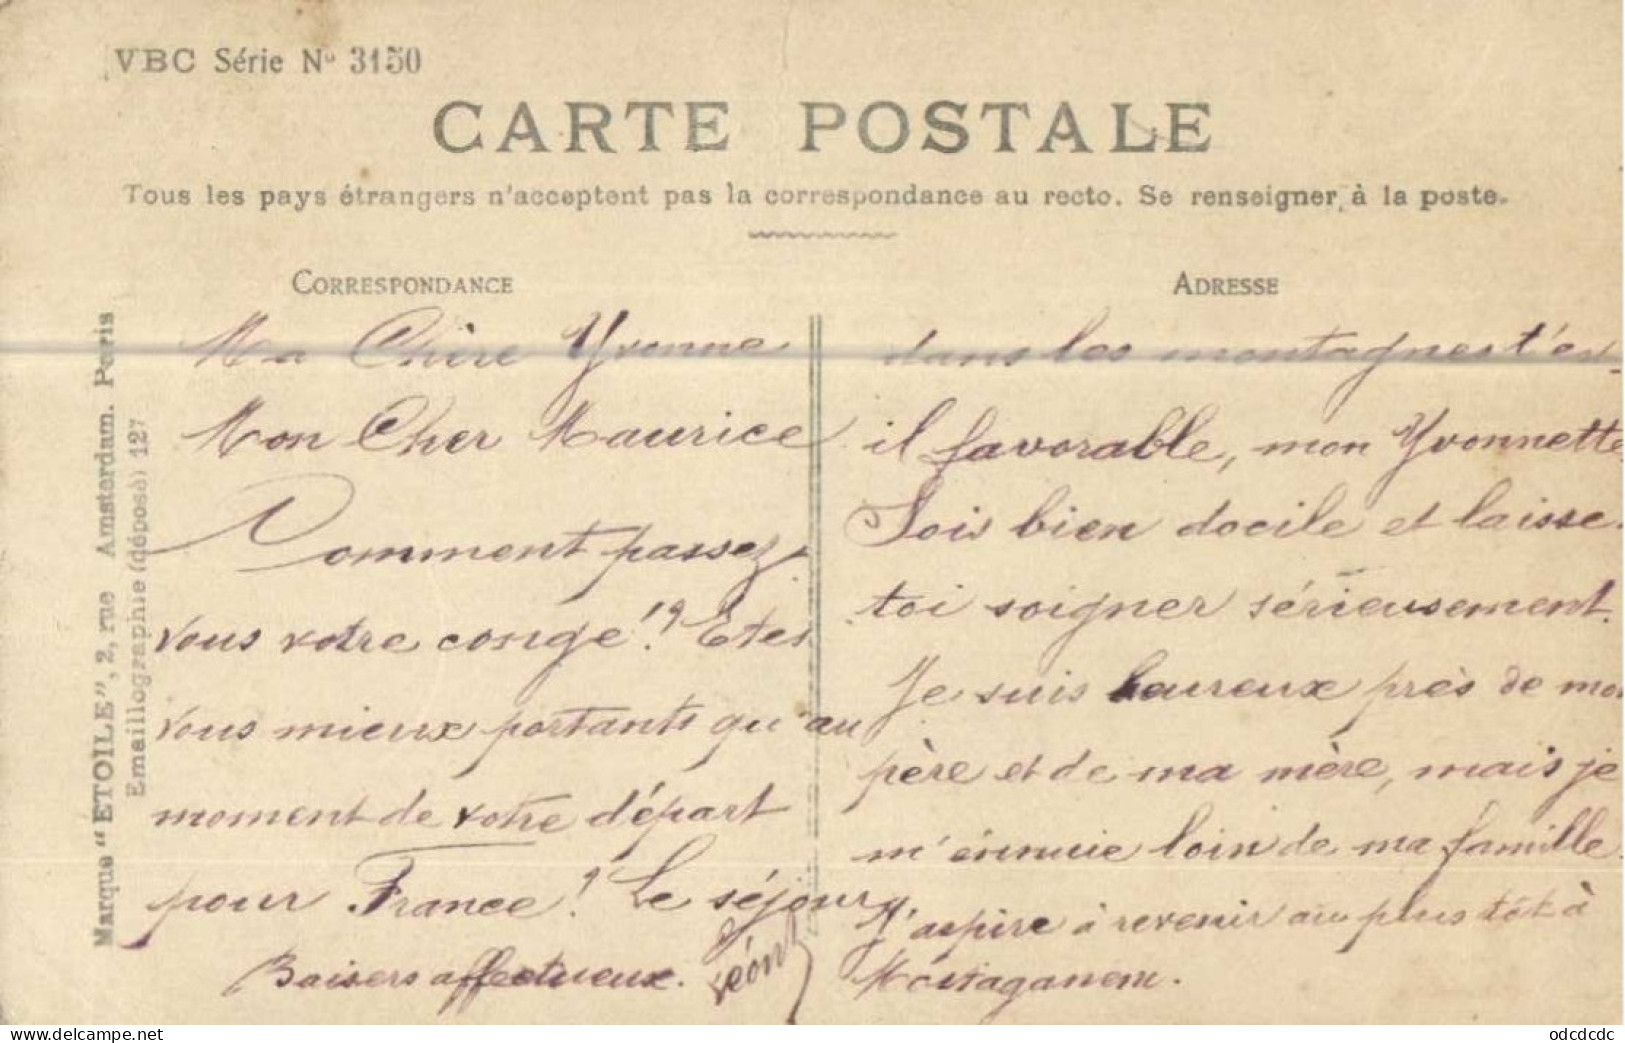 VBC Série No 3150
CARTE POSTALE
Tous les pays étrangers n'acceptent pas la correspondance au recto. Se renseigner à la poste.
CORRESPONDANCE
Ma Chère Yvonne
Mon Cher Maurice
Comment passez
vous votre congé!? Etes
vous mieux portants qu'au
moment de votre départ
pour France? Le séjour
Baisers affectueux. Léon
ADRESSE
dans les montagnes t'est
il favorable, mon Yvonnette
Sois bien docile et laisse-
toi soigner sérieusement.
Je suis heureux près de mon
père et de ma mère, mais je
m'ennuie loin de ma famille.
J'aspire à revenir au plus tôt à
Mostaganem.
Marque "ETOILE", 2, rue Amsterdam. Paris
Emaillographie (déposé) 127
www.delcampe.net
odcdcdc